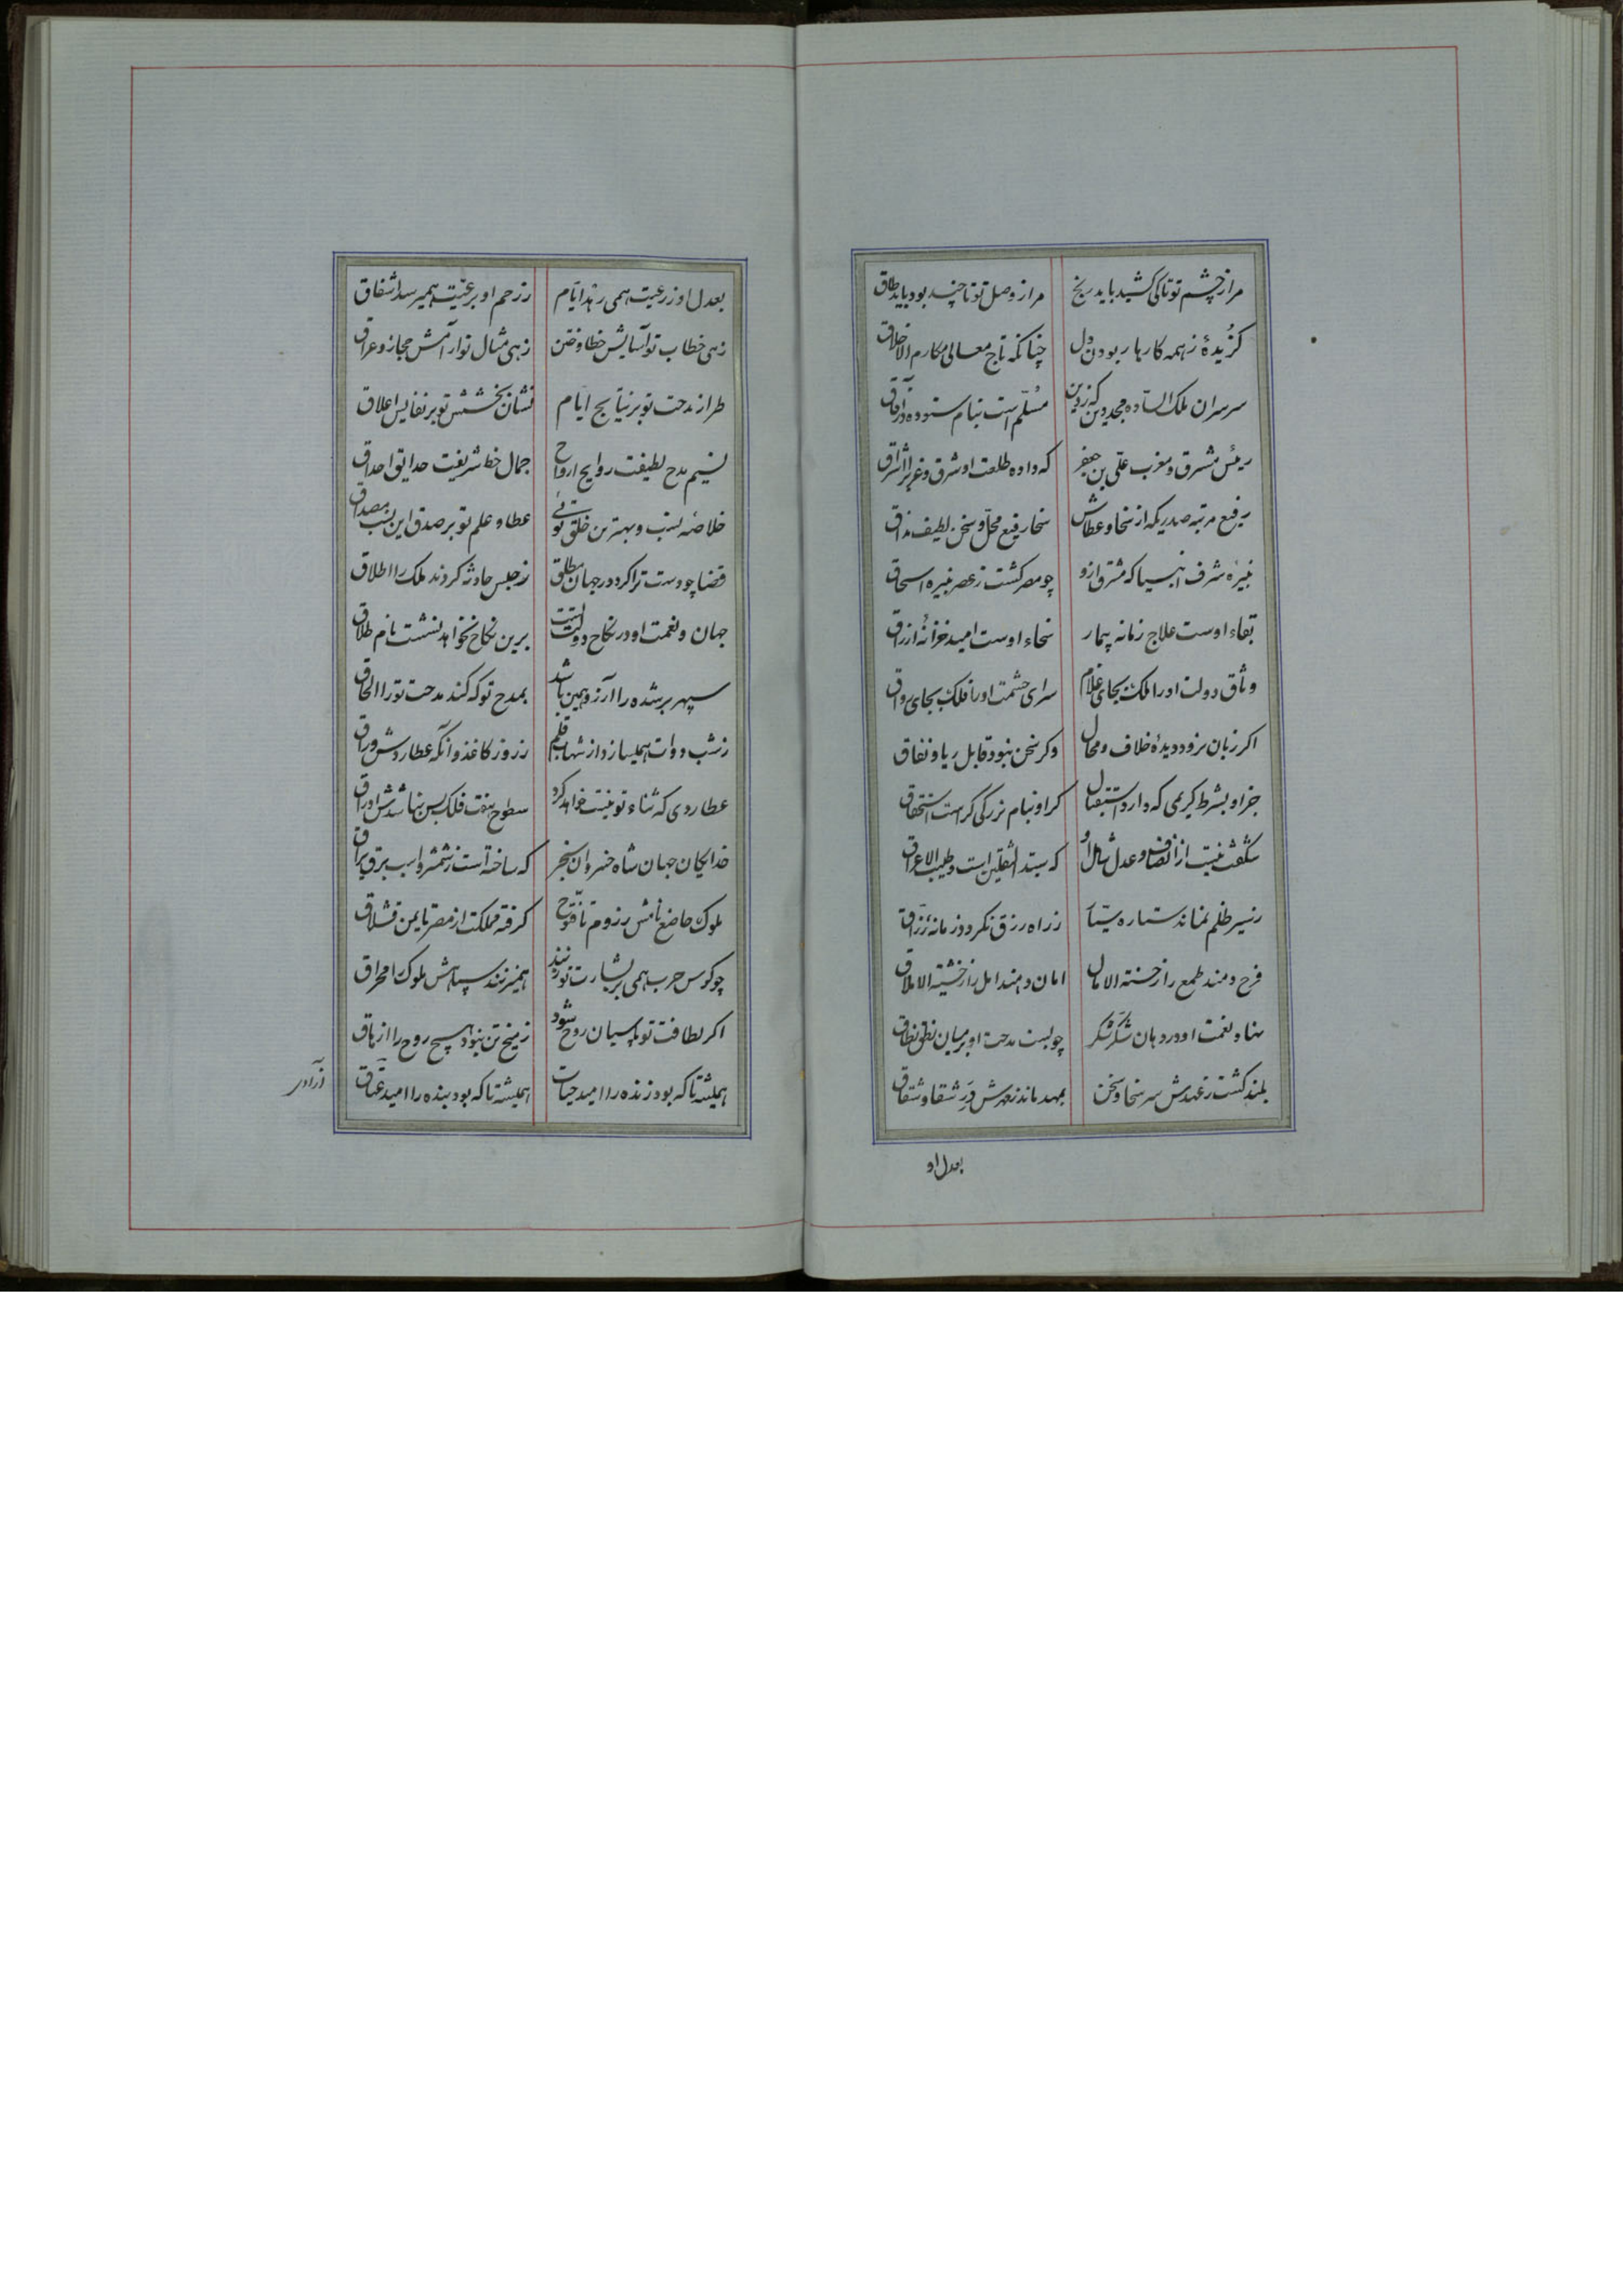 مرا ز چشم تو تا کی کشید باید رنج مرا ز وصل تو تا چند بود باید طاق
گزیدهٔ ز همه کارها ربودن دل چنانکه تاج معالی مکارم الاخلاق
سر سران ملک الساده مجد دین که ز دین مسلم است بنام ستوده در آفاق
رئیس مشرق و مغرب علی بن جعفر که داده طلعت او شرق و غرب را اشراق
رفیع مرتبه صدریکه از سخا و عطاش سخا رفیع محل و سخن لطیف مذاق
نبیرهٔ شرف انبیا که مشرق ازو چو مصر گشت ز عصر نبیره اسحاق
بقاء اوست علاج زمانه بیمار سخاء اوست امید خزانهٔ ارزاق
وثاق دولت او را ملک بجای غلام سرای حشمت او را فلک بجای رواق
اکر زبان نرود دیدهٔ خلاف و محال وکر سخن نبود قابل ریا و نفاق
جز او بشرط کریمی که دارد استقبال کر او بنام بزرگی کراست استحقاق
شگفت نیست از انصاف و عدل شامل او که سید الثقلین است و طیب الاعراق
ز سیر ظلم بماند ستاره سیار ز راه رزق نگردد زمانه رزاق
فرح دهند طمع را ز حسنة الامال امان دهند امل را ز خشیة الاملاق
نهاد نعمت او در دهان شکر شکر چو بست مدحت او بر میان نطق نطاق
بلند گشت ز عهدش سر سخا و سخن بمهد ماند ز مهرش در شقا و شقاق
بعدل او
بعدل او ز رعیت همی رمد ایام ز رحم او برعیت همیرسد اشفاق
زهی خطاب تو آسایش خطا و ختن زهی مثال تو آرامش حجاز و عراق
طراز مدحت تو بر نتایج ایام نشان بخشش تو بر نفایس اعلاق
نسیم مدح لطیفت روایح ارواح جمال خط شریفت حدایق احداق
خلاصه نسب و بهترین خلق توئی عطا و علم تو بر صدق این نسب مصداق
قضا چو دست ترا کرد در جهان مطلق ز حبس حادثه کردند ملک را اطلاق
جهان و نعمت او در نکاح دولت تست برین نکاح نخواهد نشست نام طلاق
سپهر بر شده را آرزو همین باشد بمدح تو که کند مدحت تو را الحاق
ز شب دوات همیسازد از شهاب قلم ز روز کاغذ و آنکه عطاردش وراق
عطاردی که ثناء تو نیت خواهد کرد سطوح هفت فلک بس نباشدش اوراق
خدایگان جهان شاه خسروان سنجر که ساخته است ز شمشیر و اسب برق براق
ملوک خاضع نامش ز روم تا قنوج گرفته مملکت از مصر تا یمن قشلاق
چو کوس حرب همی بر بشارت تو زنند همیزنند سپاهش ملوک را مخراق
اکر لطافت تو پاسبان روح شود ز میخ تن نبود هیچ روح را ازهاق
همیشه تا که بود زنده را امید حیات همیشه تا که بود بنده را امید عتاق
آزادی